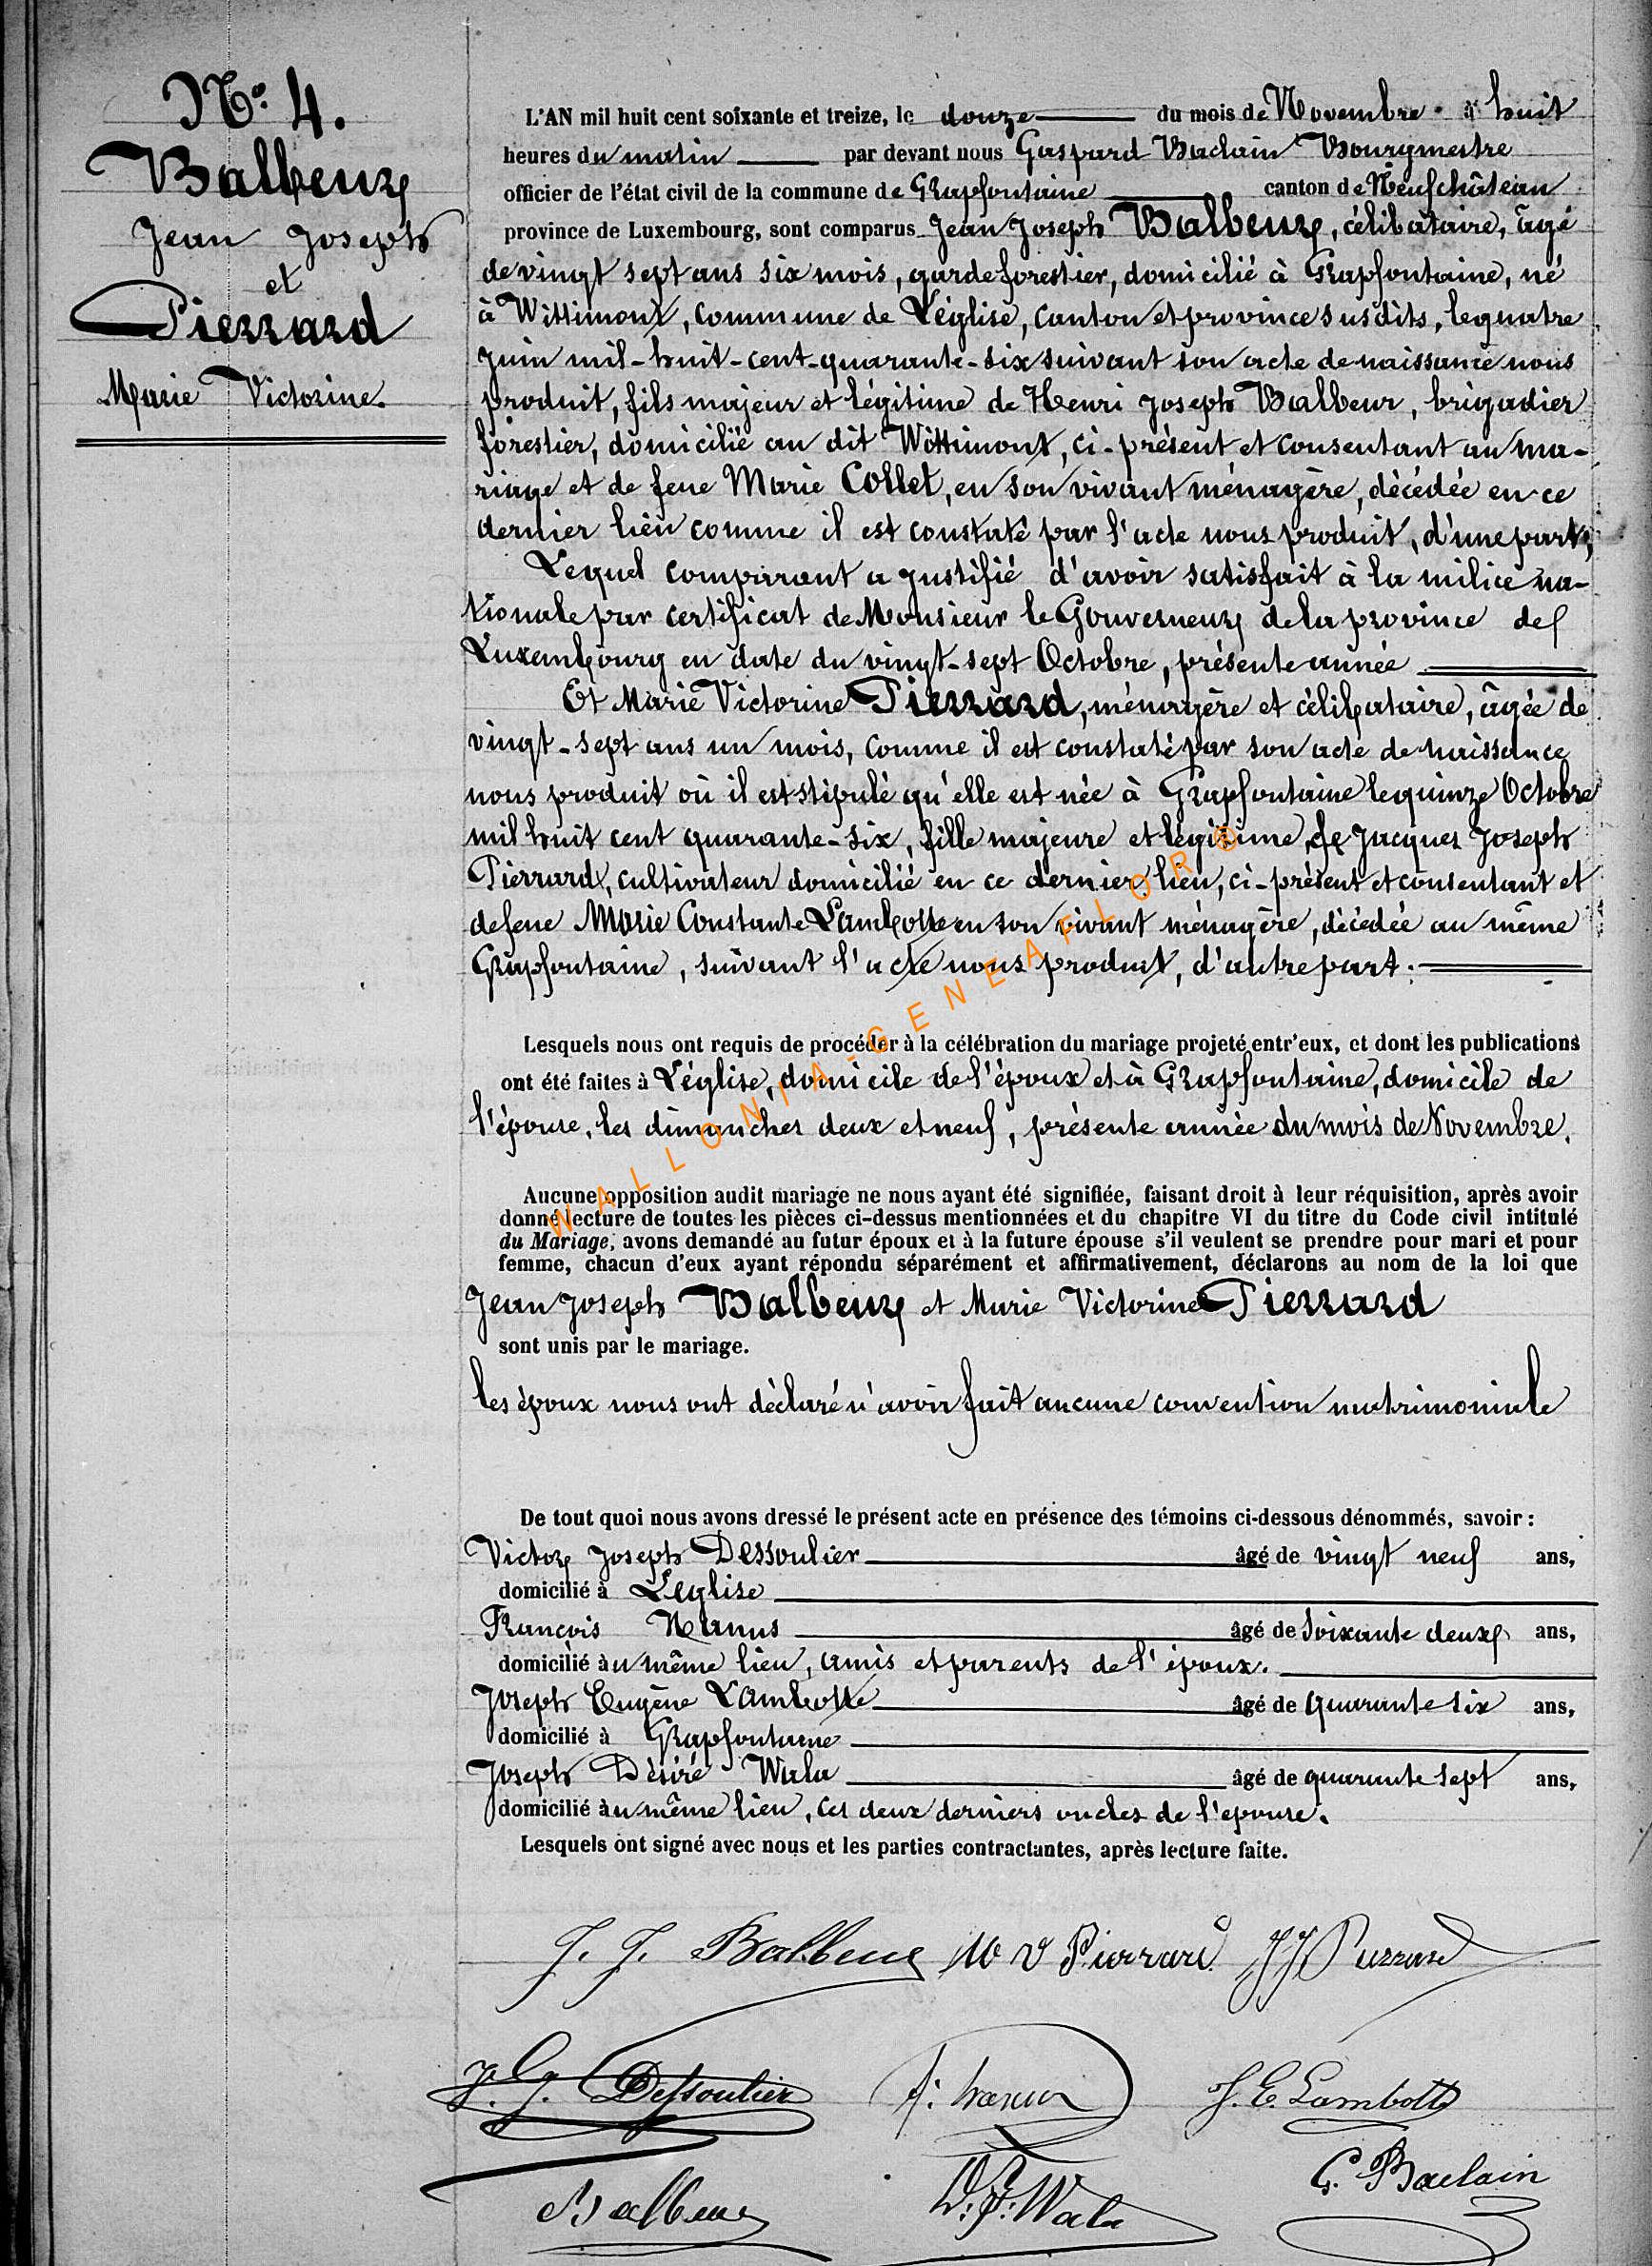 N° 4.
Balbeur
Jean Joseph
et
Pierrard
Marie Victorine.
L'AN mil huit cent soixante et treize, le douze du mois de Novembre à huit
heures du matin par devant nous Gaspard Baclain Bourgmestre
officier de l'état civil de la commune de Grapfontaine canton de Neufchâteau
province de Luxembourg, sont comparus Jean Joseph Balbeur, célibataire, âgé
de vingt sept ans six mois, garde forestier, domicilié à Grapfontaine, né
à Wittimont, commune de Léglise, canton et province susdits, le quatre
Juin mil-huit-cent-quarante-six suivant son acte de naissance nous
produit, fils majeur et légitime de Henri Joseph Balbeur, brigadier
forestier, domicilié au dit Wittimont, ci-présent et consentant au ma-
riage et de feue Marie Collet, en son vivant ménagère, décédée en ce
dernier lieu comme il est constaté par l'acte nous produit, d'une part;
Lequel comparant a justifié d'avoir satisfait à la milice na-
tionale par certificat de Monsieur le Gouverneur de la province de
Luxembourg en date du vingt-sept Octobre, présente année
Et Marie Victorine Pierrard, ménagère et célibataire, âgée de
vingt-sept ans un mois, comme il est constaté par son acte de naissance
nous produit où il est stipulé qu'elle est née à Grapfontaine le quinze Octobre
mil huit cent quarante-six, fille majeure et légitime de Jacques Joseph
Pierrard, cultivateur domicilié en ce dernier lieu, ci-présent et consentant et
de feue Marie Constante Lambotte en son vivant ménagère, décédée au même
Grapfontaine, suivant l'acte nous produit, d'autre part.
Lesquels nous ont requis de procéder à la célébration du mariage projeté entr'eux, et dont les publications
ont été faites à Léglise, domicile de l'époux et à Grapfontaine, domicile de
l'épouse, les dimanches deux et neuf, présente année du mois de Novembre.
Aucune opposition audit mariage ne nous ayant été signifiée, faisant droit à leur réquisition, après avoir
donné lecture de toutes les pièces ci-dessus mentionnées et du chapitre VI du titre du Code civil intitulé
du Mariage, avons demandé au futur époux et à la future épouse s'il veulent se prendre pour mari et pour
femme, chacun d'eux ayant répondu séparément et affirmativement, déclarons au nom de la loi que
Jean Joseph Balbeur et Marie Victorine Pierrard
sont unis par le mariage.
les époux nous ont déclaré n'avoir fait aucune convention matrimoniale
De tout quoi nous avons dressé le présent acte en présence des témoins ci-dessous dénommés, savoir :
Victor Joseph Dessoulier âgé de vingt neuf ans,
domicilié à Léglise
François Hanus âgé de Soixante deux ans,
domicilié au même lieu, amis et parents de l'époux.
Joseph Eugène Lambotte âgé de Quarante six ans,
domicilié à Grapfontaine
Joseph Désiré Wala âgé de quarante sept ans,
domicilié au même lieu, ces deux derniers oncles de l'épouse.
Lesquels ont signé avec nous et les parties contractantes, après lecture faite.
J. J. Balbeur M V Pierrard JJ Pierrard
Dessoulier J. E. Lambotte
Balbeur D. J. Wala G. Baclain
WALLONIA-GENEAFLOR ®